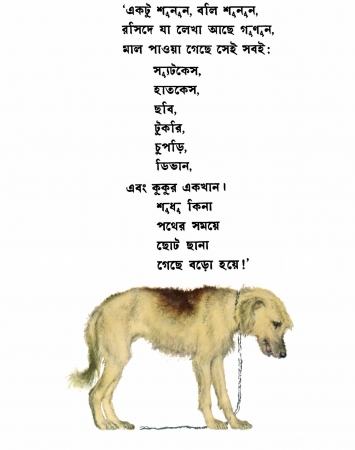 ‘একটু শুনুন, বলি শুনুন,
রসিদে যা লেখা আছে গুণুন,
মাল পাওয়া গেছে সেই সবই:
স্যুটকেস,
হাতকেস,
ছবি,
টুকরি,
চুপড়ি,
ডিভান,
এবং কুকুর একখান।
শুধু কিনা
পথের সময়ে
ছোট ছানা
গেছে বড়ো হয়ে!’